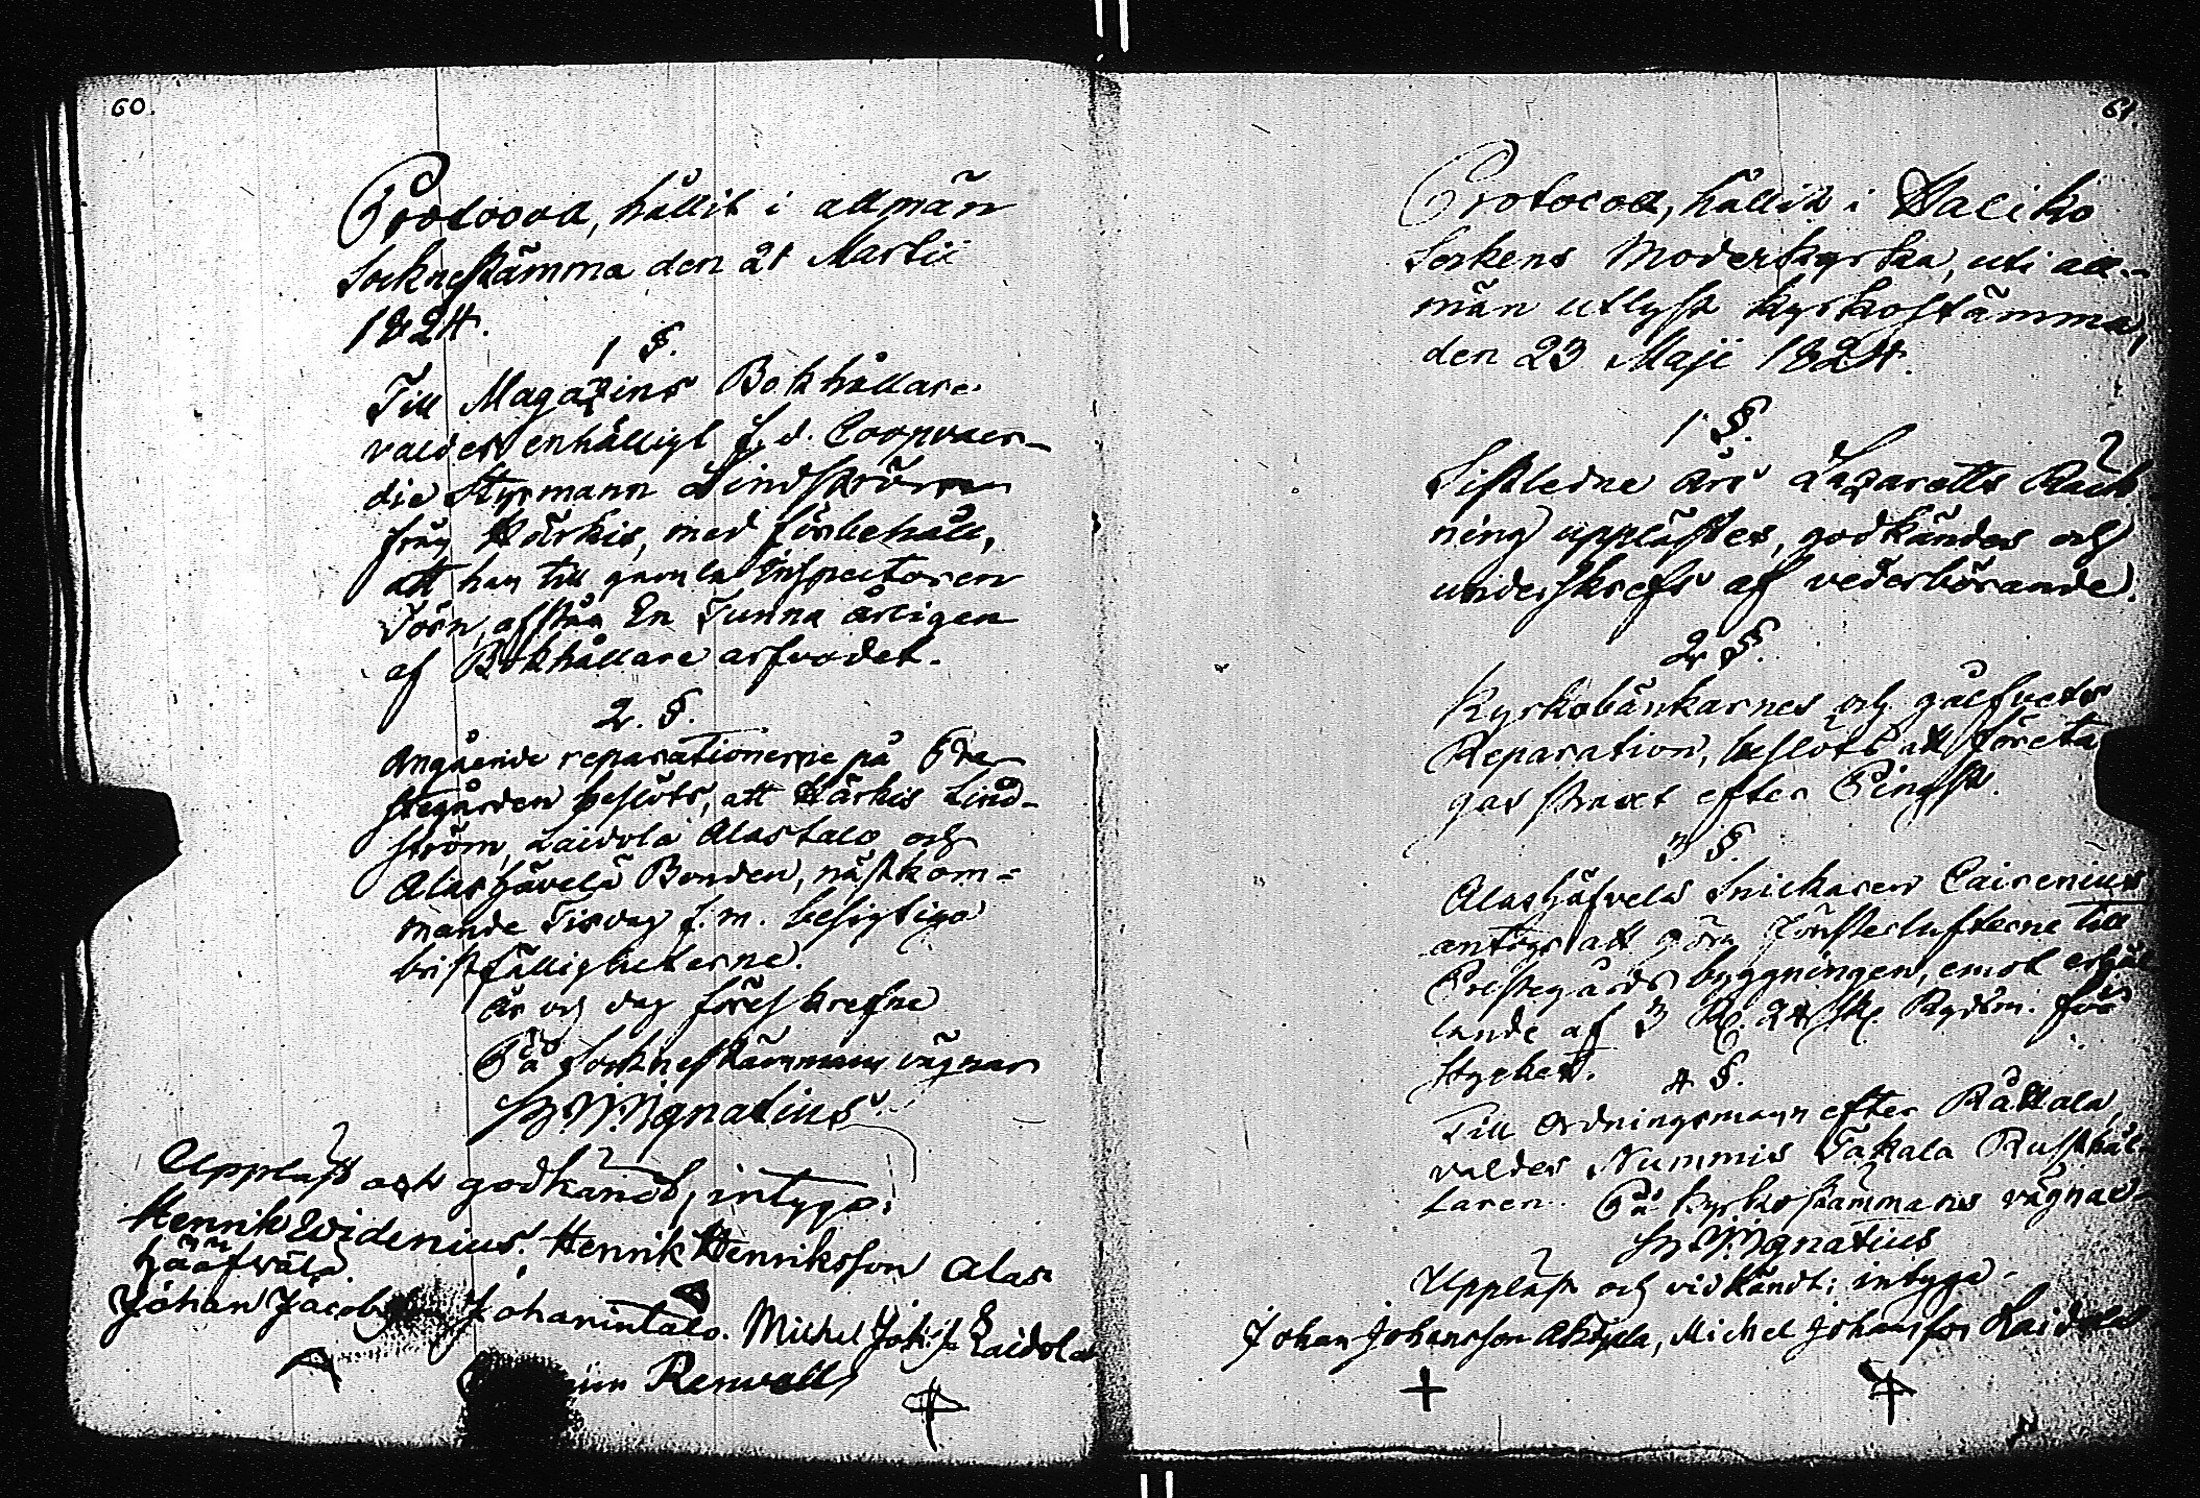 60.
Protocoll, hållit i allmän
Socknestämma den 21 Martii
1824.
1 §.
Till Magazins Bokhållare
valdes enhälligt f. d. Coopvaer-
die Styrmann Lindström
från Kärkis, med förbehåll,
att han till gamla Inspectoren
Törn, afstår En Tunna årligen
af Bokhållare arfvodet.
2. §.
Angående reparationerne på Pre-
stegården beslöts, att Kärkis Lind-
ström, Laidola Alastalo och
Alashävelä Bonden, nästkom-
mande Tisdag f. m. besigtiga
bristfälligheterne.
År och dag föreskrefne
På Sockneståmmans vägnar
Ignatius
Uppläst och godkändt, intyga:
Henrik Widenius. Henrik Henriksson Alas
hääfwälä.
Johan Jacobsson Johanintalo. Michel Laidola
Renwall
61.
Protocoll, hållit i Haliko
Sockens Moderkyrka, uti all-
män utlyst kyrkostämma,
den 23 Maji 1824.
1 §.
Sistledne års Lazaretts Räck
ning upplästes, godkändes och
underskrefs af vederbörande.
2 §.
Kyrkobänkarnes och gålfvets
Reparation, beslöts att företa
gas straxt efter Pingst.
3 §.
Alashäfvelä Snickaren Cairenius
antogs att göra fönsterlufterne till
Prestegårds byggningen, emot erhål
lande af 3 R. 24 sk. Rgdsm. för
Stycket.
4 §.
Till Ordningsmann efter Råttala,
valdes Nummis Takala Rusthål
laren. På kyrkostämmans vägnar
Ignatius
Uppläst och vidkändt; intyga
Johan Johansson, Michel Johansson Laidola